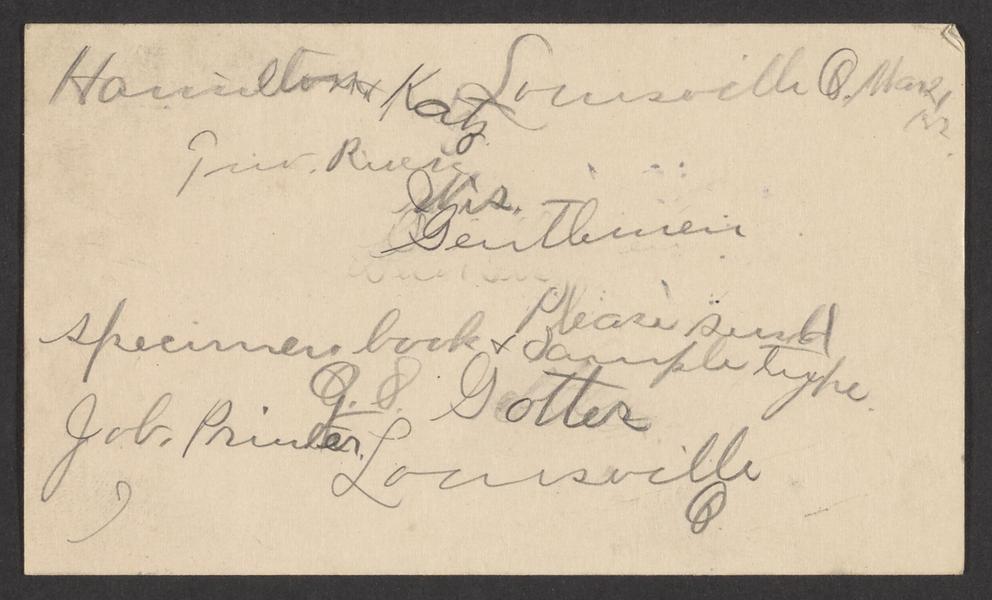 Louisville O. Mar 2,
Hamilton & Katz
Two Rivers
Wis.
Gentlemen
Please send
specimen book & Sample type.
G. S. Gotter
Job. Printer. Louisville
O.